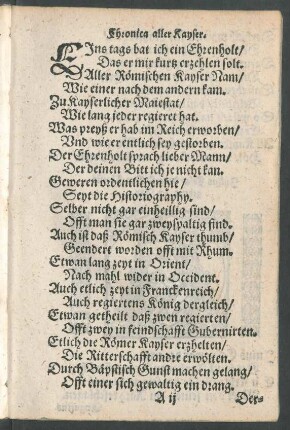 Chronica aller Kayser.
EIns tags bat ich ein Ehrenholt/
Das er mir kurtz erzehlen solt.
Aller Römischen Kayser Nam/
Wie einer nach dem andern kam.
Zu Kayserlicher Maiestat/
Wie lang jeder regieret hat.
Was preyß er hab im Reich erworben/
Vnd wie er entlich sey gestorben.
Der Ehrenholt sprach lieber Mann/
Der deinen Bitt ich je nicht kan.
Geweren ordentlichen hie/
Seyt die Historiography.
Selber nicht gar einheillig sind/
Offt man sie gar zwyspaltig find.
Auch ist daß Römisch Kayserthumb/
Geendert worden offt mit Rhum.
Etwan lang zeyt in Orient/
Nach mahl wider in Occident.
Auch etlich zeyt in Franckenreich/
Auch regiertens König dergleich/
Etwan getheilt daß zwen regierten/
Offt zwey in feindschafft Gubernirten.
Etlich die Römer Kayser erzhelten/
Die Ritterschafft andre erwölten.
Durch Bäpstisch Gunst machen gelang/
Offt einer sich gewaltig ein drang.
A ij
Der-